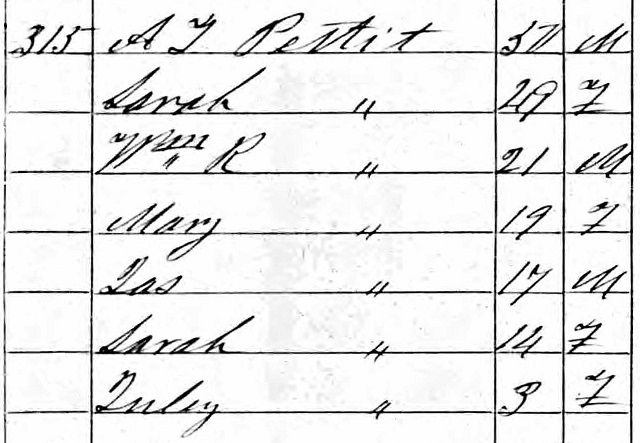 315 A T Pettit 50 M
Sarah " 29 F
Wm R " 21 M
Mary " 19 F
Jas " 17 M
Sarah " 14 F
" 3 F